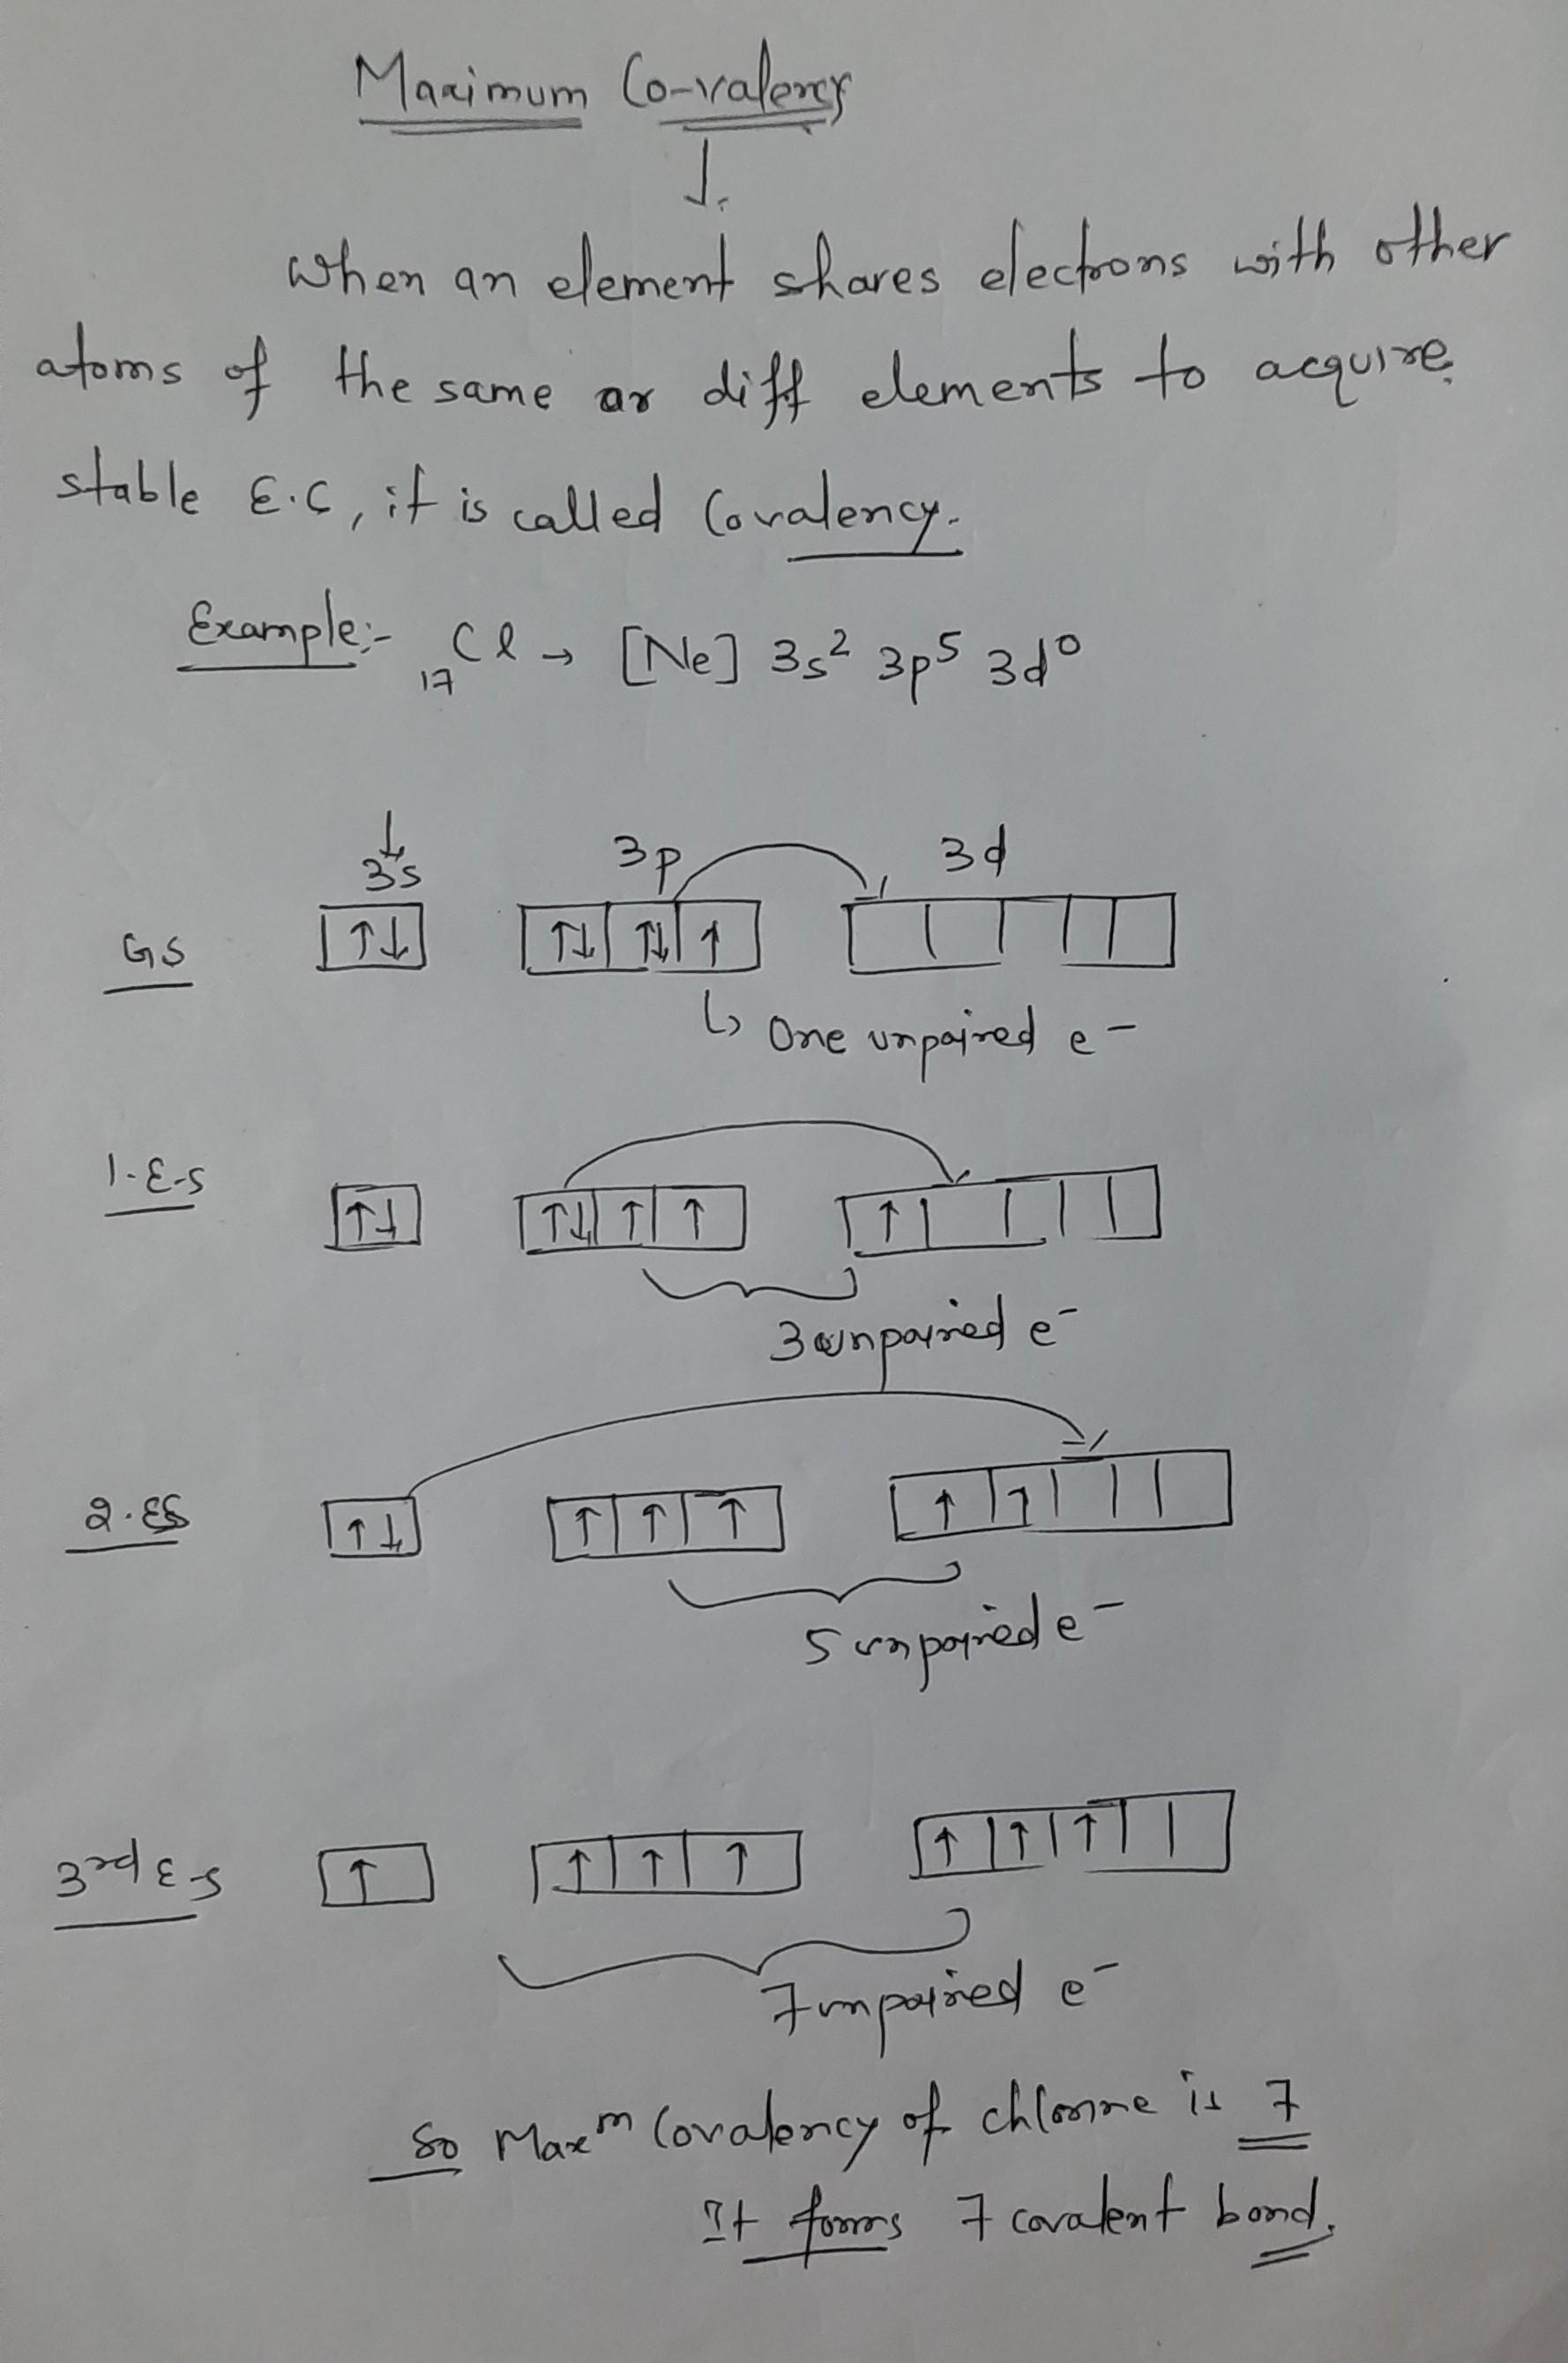 Maximum Co-valency
↓
When an element shares electrons with other
atoms of the same or diff elements to acquire
stable E.C, it is called Covalency.
Example:- ₁₇Cl → [Ne] 3s² 3p⁵ 3d⁰
↓
3s 3p 3d
GS ↑↓ ↑↓ ↑↓ ↑
↳ One unpaired e⁻
1.E.S ↑↓ ↑↓ ↑ ↑ ↑
3 unpaired e⁻
2.ES ↑↓ ↑ ↑ ↑ ↑ ↑
5 unpaired e⁻
3rd E-S ↑ ↑ ↑ ↑ ↑ ↑ ↑
7 unpaired e⁻
So Maxᵐ Covalency of chlorine is 7
It forms 7 covalent bond.